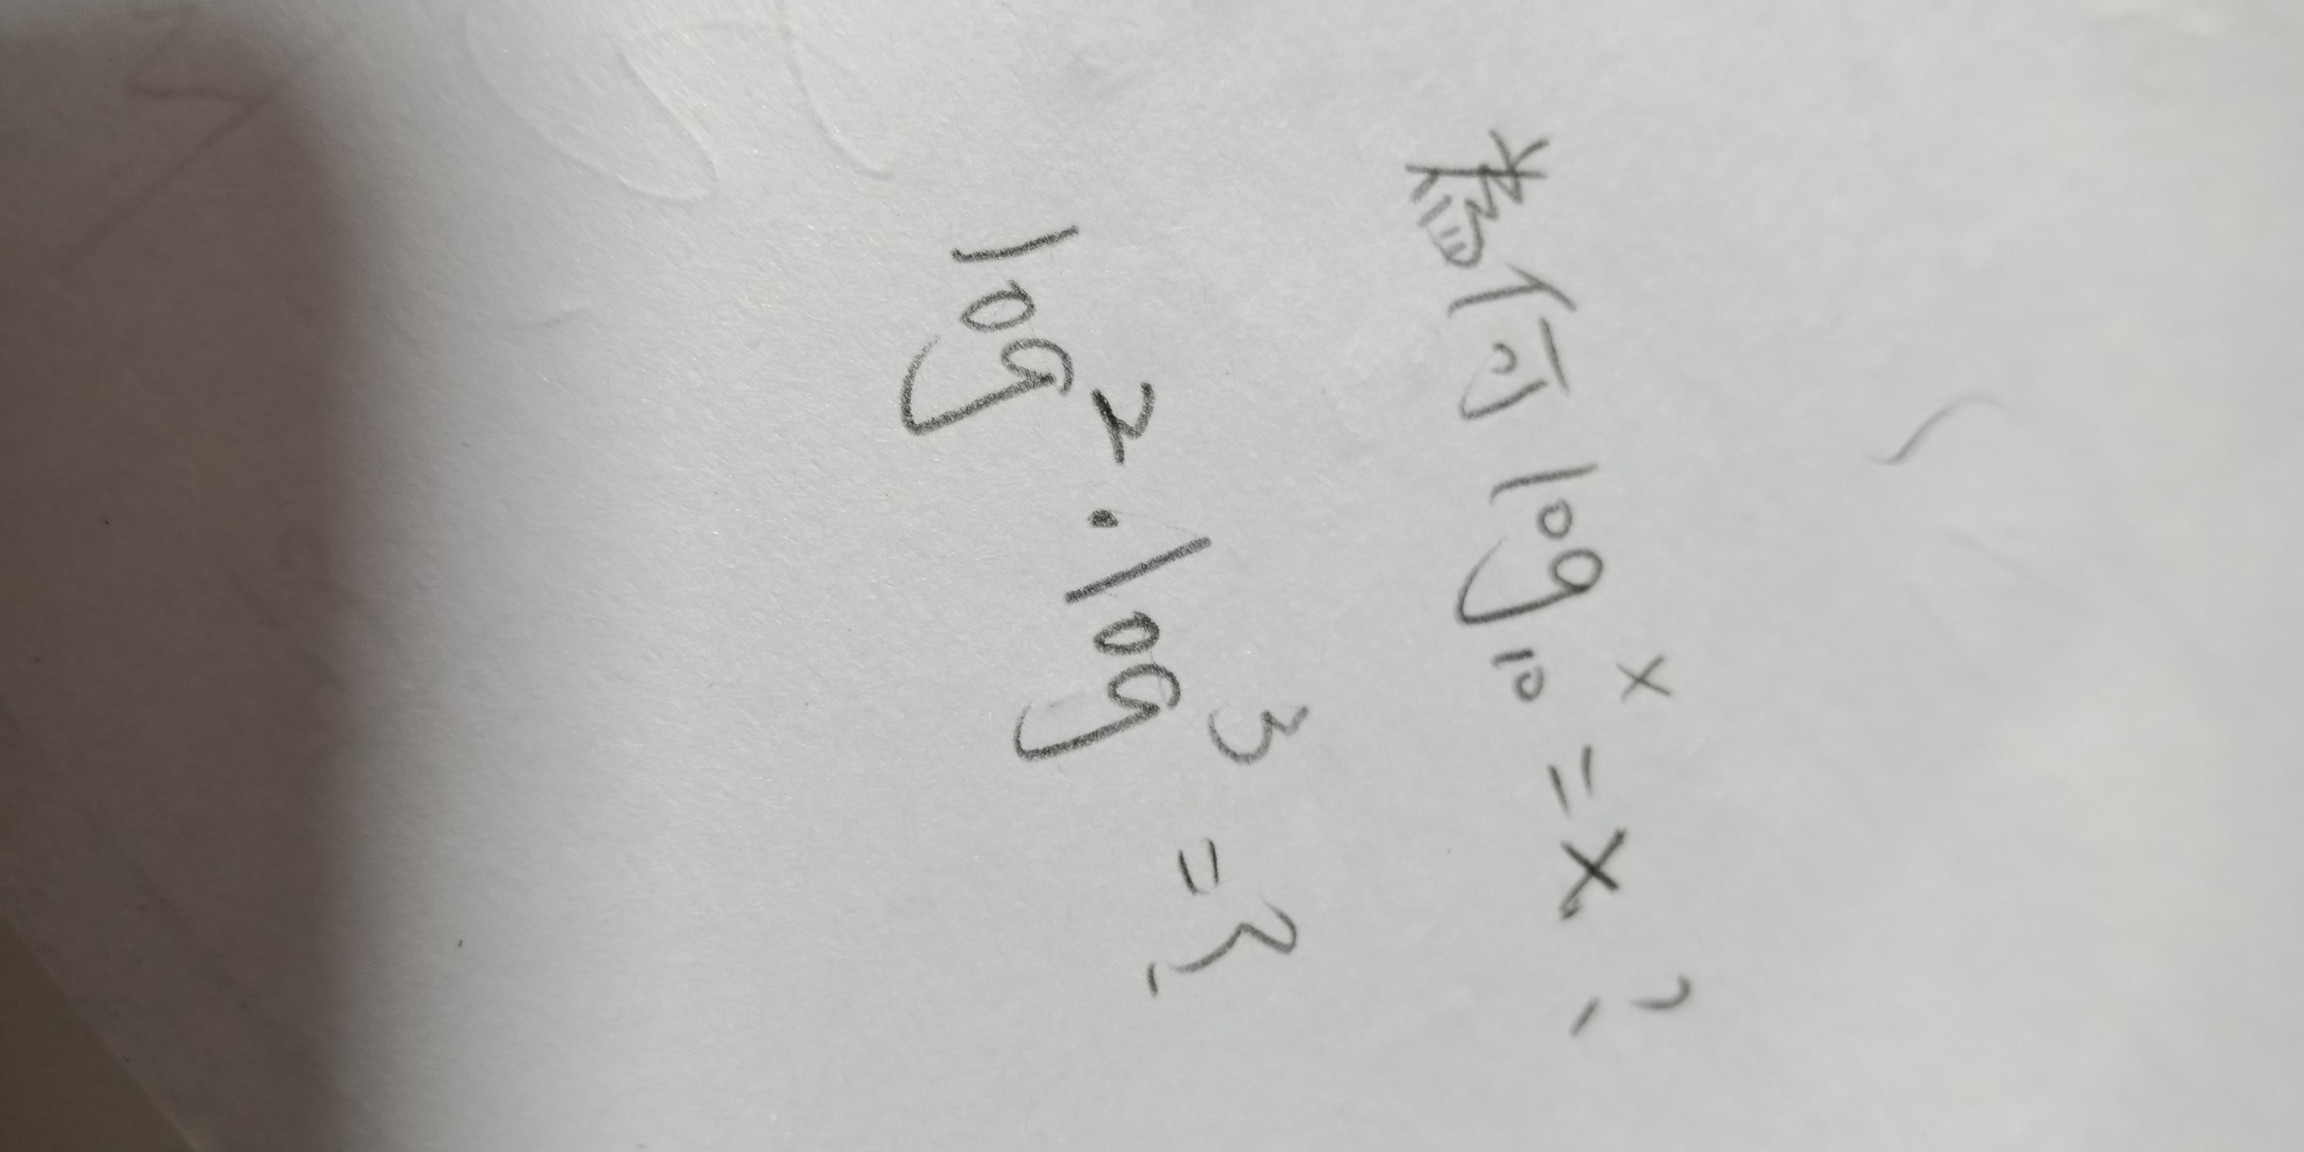 為何 log₁₀ˣ = x ?
log² · log³ = ?